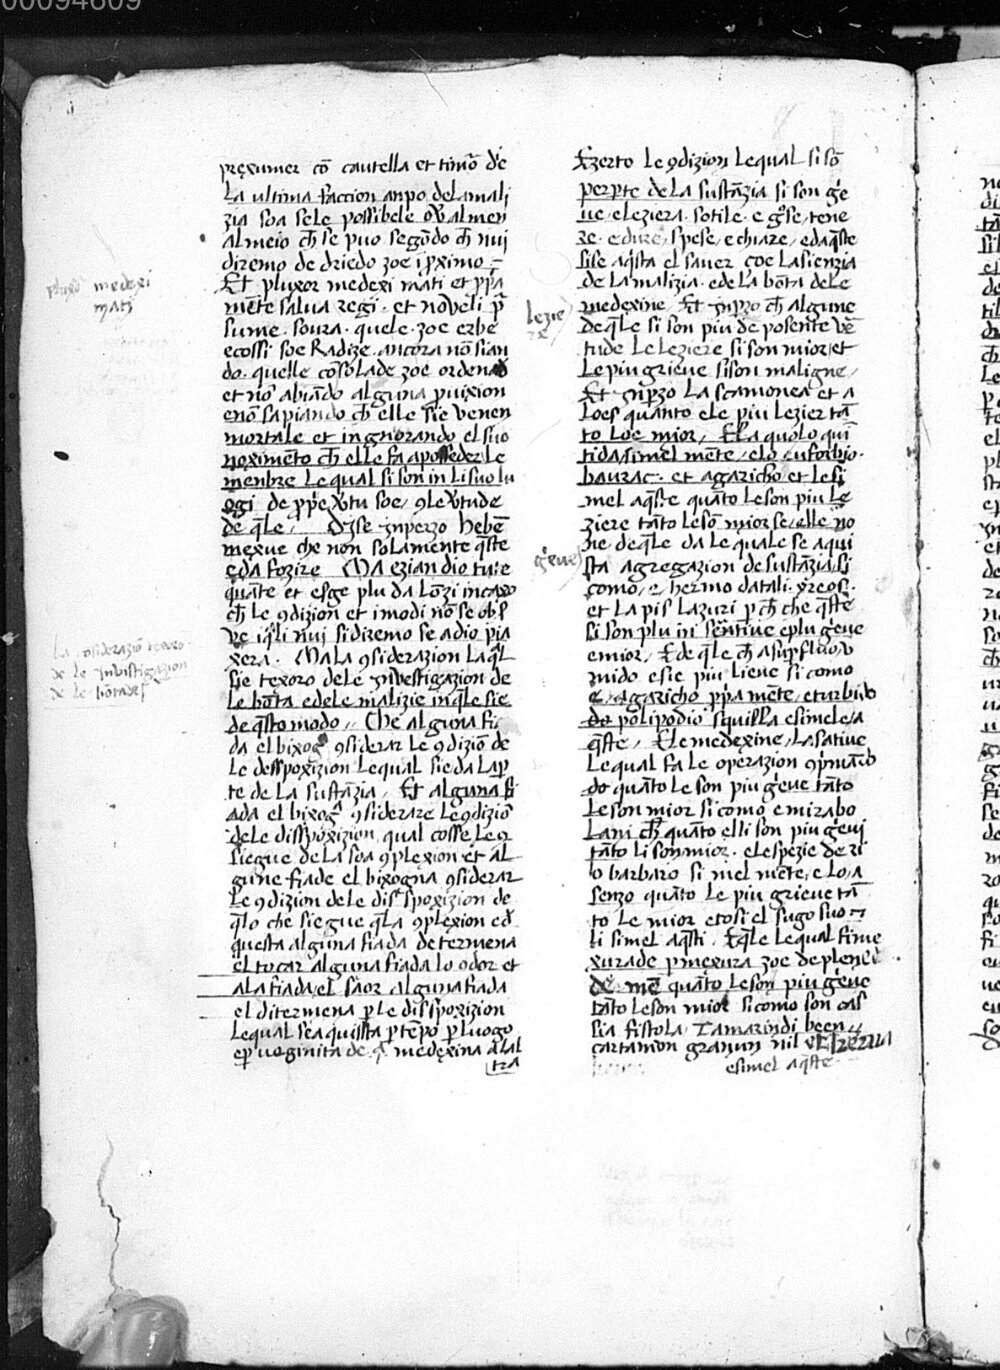 00094609
prexumer cō cautella et timō de
La ultima faccion anpo dela mali
zia soa sele possibele o ual men
al meio ch̄ se puo segōdo ch̄ nui
diremo de driedo zoe i p̱ximo
Et pluxor medexi mati et pp̄a
mēte salua regi. et noveli p̄
sume. soura. quele. zoe erbe
ecossi soe Radize. ancora nō sian
do. quelle cōsolade zoe ordenad
et nō abiādo alguna puixion
enō sapiando ch̄ elle sie venen
mortale et ingnorando el suo
noximēto ch̄ elle fa aposseder le
menbre Le qual si son in Li suo lu
ogi de pp̄e v̄tu soe, 9le v̄tude
de q̄le / Dise inperzo hebē
mexue che non solamente q̄ste
eda fozire Ma ezian dio tute
quāte et esge plu da Lonzi incaxo
ch̄ Le 9dizion et i modi nō se obs
ve iq̄li nui si dizemo se a dio pia
xera. Ma La 9siderazion La q̄L
sie texoro dele investigazion de
Le bōta e dele malizie in q̄le sie
de q̄sto modo // Che alguna fi
da el bixog̅ 9siderar Le 9diziō de
Le desspoxizion Lequal sieda La p̱
te de La sustāzia / Et alguna fi
ada el bixog̅ 9siderare Le 9diziō
dele disspoxizion qual cosse Le 9
siegue de La soa 9plexion et al
gune fiade el bixogna 9siderar
Le 9dizion dele disspoxizion de
q̄lo che siegue q̄La 9plexion ed̄
questa alguna fiada determena
el tocar alguna fiada lo odor et
ala fiada el saor alguna fiada
el ditermena p̱ le disspoxizion
Lequal sea quista p̱ tēpo p̱ Luogo
e p̱ veginita de q̄ medexina a lal
tra
pluxō medexi
mati
La 9siderazio texoro
de le investigazion
de le bōtades
Exzerto Le 9dizion Lequal si sō
per p̱te de La sustāzia si son ge
ue e Leziera. sotile. e g̅se, tene
re. e dure, spese, e chiare, e da q̄ste
sise aq̄sta el saver coe La sienzia
de La malizia. ede La bōta de Le
medexine Et inp̱zo ch̄ algune
de q̄le si son piu de posente vē
tude Le Leziere si son mior et
Le piu grieue si son maligne,
Et inp̱zo La scamonea et a
Loes quanto ele piu Lezier tā
to Loe mior, E La quolo qui
tida simel mēte, elo euforbjo.
baurac. et agaricho et Lesi
mel aq̄ste quāto Le son piu Le
ziere tāto Le sō mior se, elle nō
sie de q̄le da Le quale se aqui
sta agregazion de sustāzia, si
como, e, hermo datali. yreos.
et La pis Lazuri p̱ch̄ che q̄stē
si son plu in sēntiue e plu gieue
e mior, E de q̄le ch̄ a sup̱fluo v
mido e sie piu Lieue si como
e, agaricho pp̄a mēte, e turbido
do polipodio squilla e simele, a
q̄ste / E Le medexine, La satiue
Lequal fa Le operazion 9p̄mādo
do quāto Le son piu gieue tāto
Le son mior si como e mirabo
Lani ch̄ quāto elli son piu gieui
tāto li son mior. e Le spezie de ri
o barbaro si mel mēte, e Lo, a
senzo quāto Le piu grieue tā
to Le mior e tosi el sugo suo
li simel aq̄sti. Eq̄le Lequal fi me
xurade p̱ mexura zoe de plene
de mē quāto Le son piu gieue
tāto Le son mior si como son cas
sia fistola Tamarindi been
cartamon granum nil et Ireria
e simel aq̄ste
Lezie
re
gieue